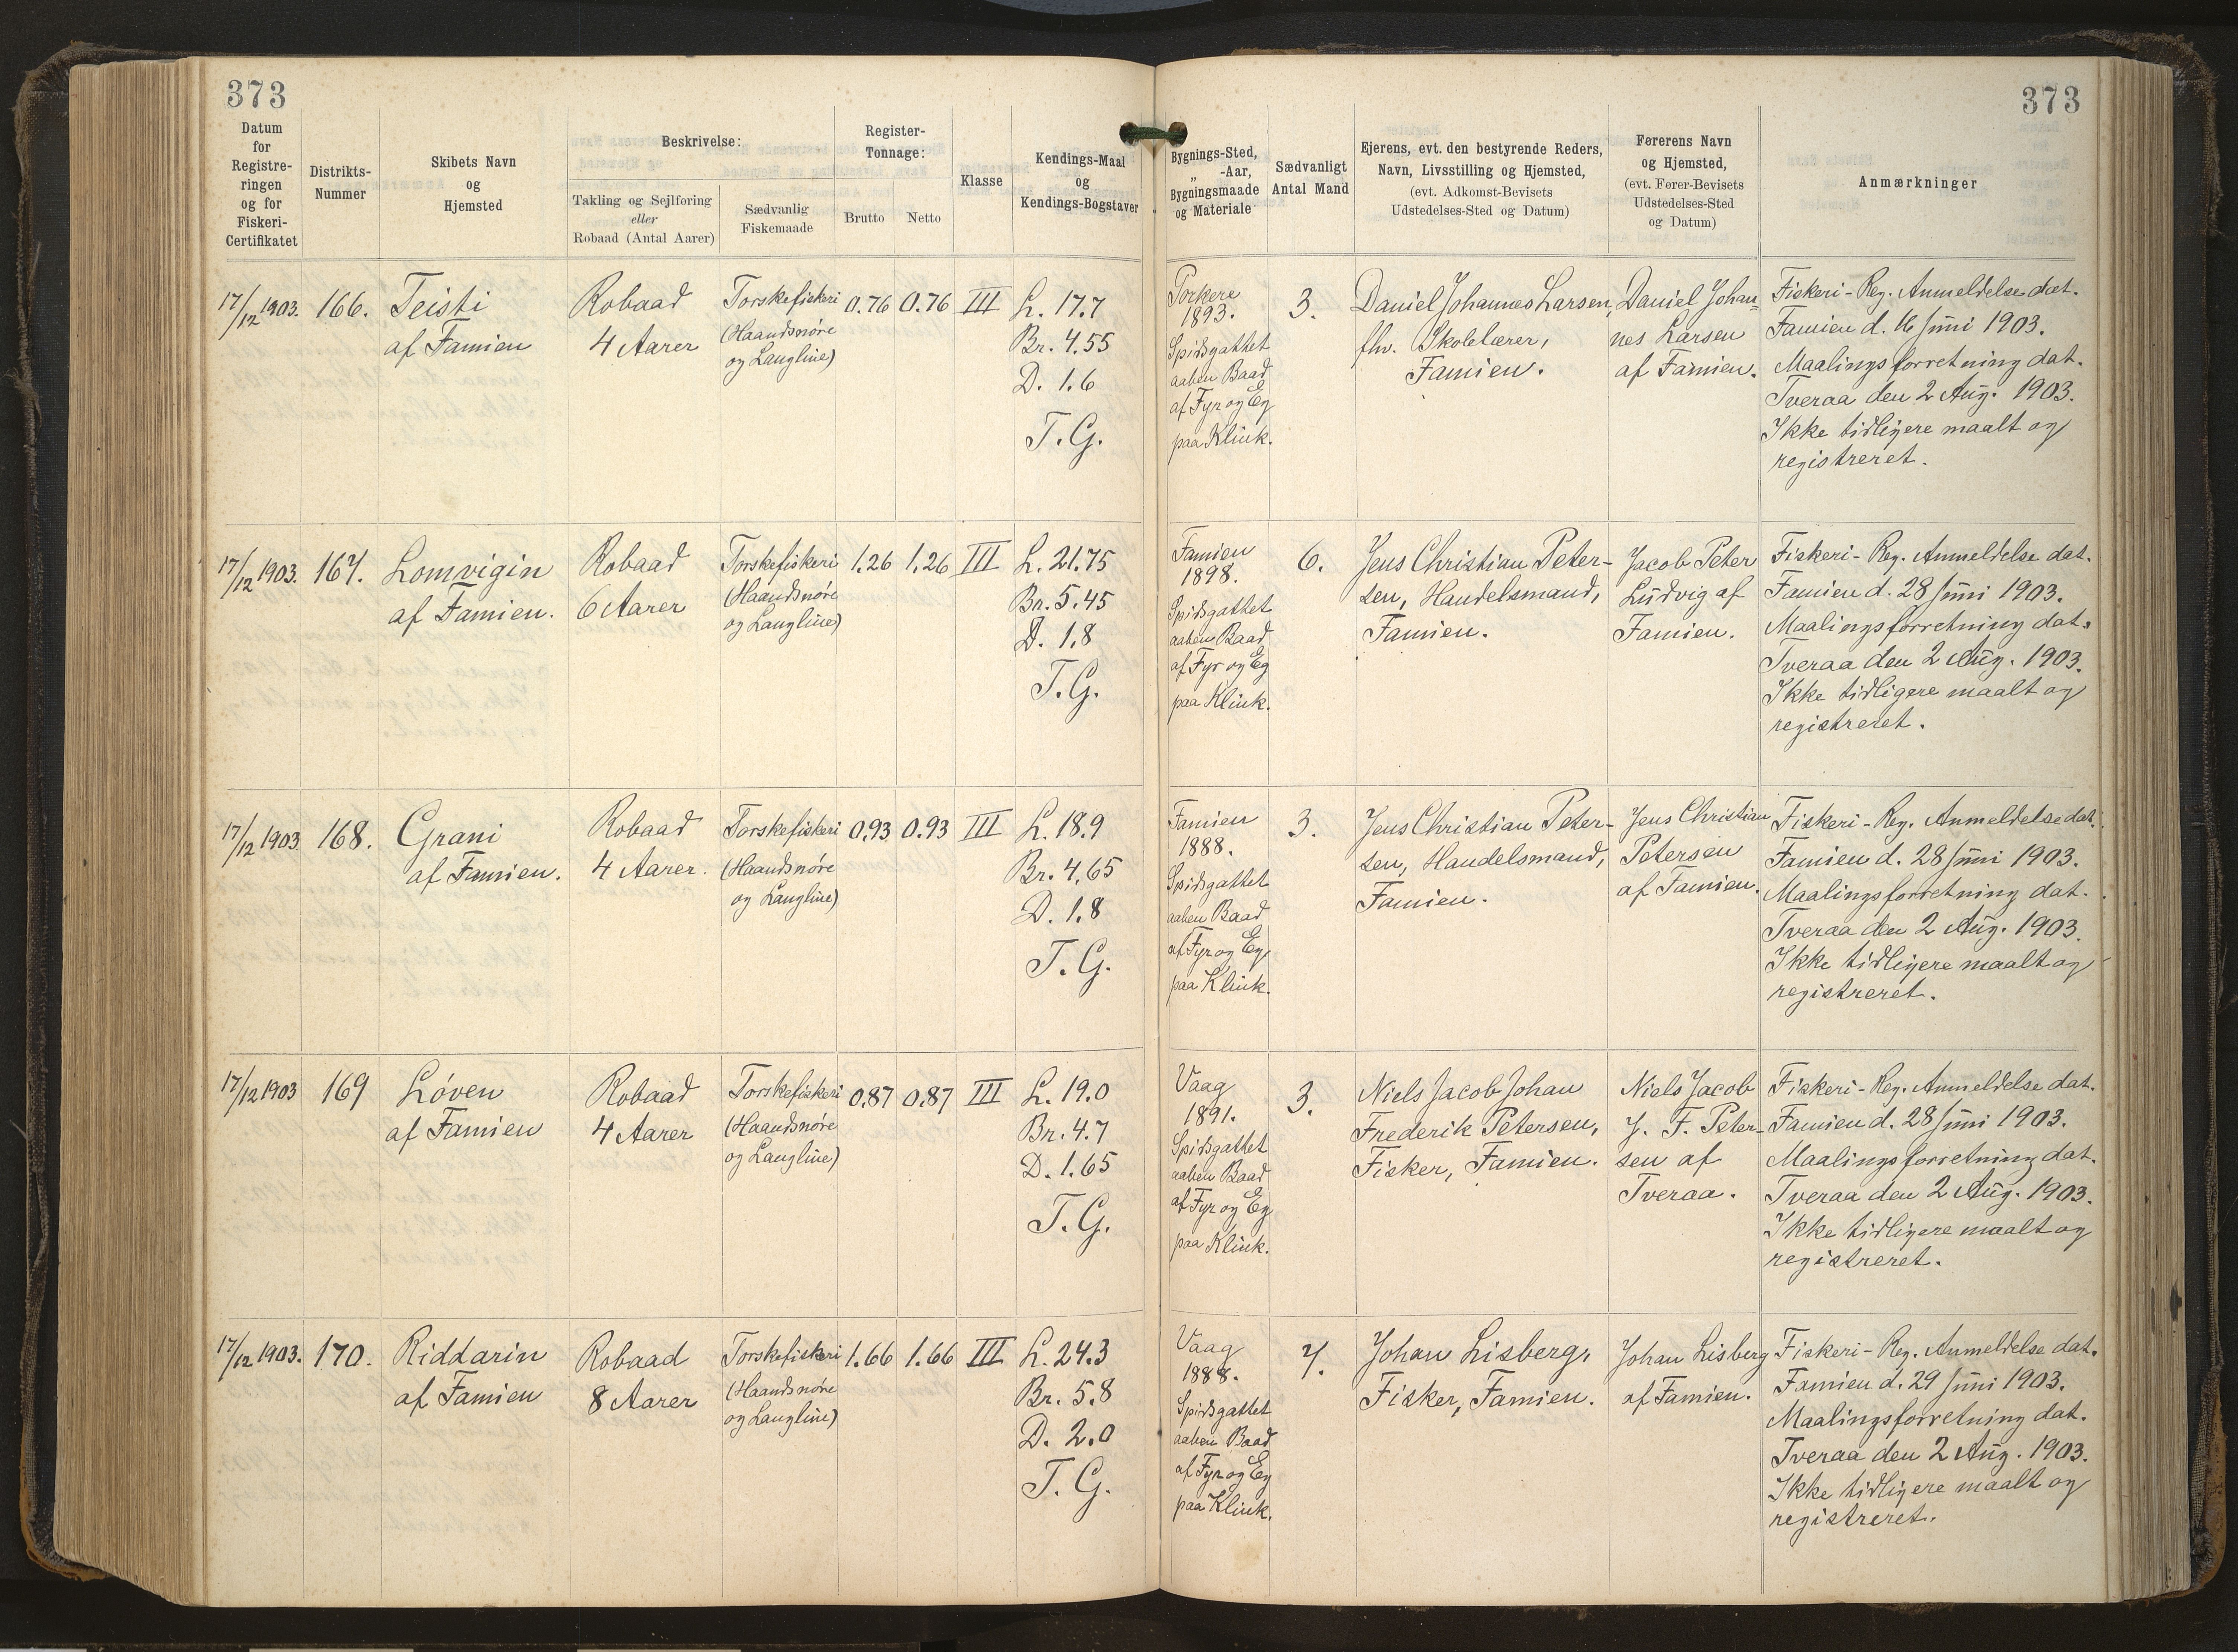 373
373
Datum
for
Registre-
ringen
og for
Fiskeri-
Certifikatet
Distrikts-
Nummer
Skibets Navn
og
Hjemsted
Beskrivelse:
Takling og Sejlføring
eller
Robaad (Antal Aarer)
Sædvanlig
Fiskemaade
Register-
Tonnage:
Brutto
Netto
Klasse
Kendings-Maal
og
Kendings-Bogstaver
Bygnings-Sted,
„ -Aar,
Bygningsmaade
og Materiale
Sædvanligt
Antal Mand
Ejerens, evt. den bestyrende Reders,
Navn, Livsstilling og Hjemsted,
(evt. Adkomst-Bevisets
Udstedelses-Sted og Datum)
Førerens Navn
og Hjemsted,
(evt. Fører-Bevisets
Udstedelses-Sted
og Datum)
Anmærkninger
17/12 1903.
166.
Teisti
af Famien
Robaad
4 Aarer
Torskefiskeri
(Haandsnøre
og Langline)
0.76
0.76
III
L. 17.7
Br. 4.55
D. 1.6
T. G.
Porkere
1893.
Spidsgattet
aaben Baad
af Fyr og Eg
paa Klink.
3.
Daniel Johannes Larsen,
fhv. Skolelærer,
Famien.
Daniel Johan-
nes Larsen
af Famien.
Fiskeri-Reg. Anmeldelse dat.
Famien d. 16 Juni 1903.
Maalingsforretning dat.
Tveraa den 2 Aug. 1903.
Ikke tidligere maalt og
registreret.
17/12 1903.
167.
Lomvigin
af Famien.
Robaad
6 Aarer
Torskefiskeri
(Haandsnøre
og Langline)
1.26
1.26
III
L. 21.75
Br. 5.45
D. 1.8
T. G.
Famien
1898.
Spidsgattet
aaben Baad
af Fyr og Eg
paa Klink.
6.
Jens Christian Peter-
sen, Handelsmand,
Famien.
Jacob Peter
Ludvig af
Famien.
Fiskeri-Reg. Anmeldelse dat.
Famien d. 28 Juni 1903.
Maalingsforretning dat.
Tveraa den 2 Aug. 1903.
Ikke tidligere maalt og
registreret.
17/12 1903
168.
Grani
af Famien.
Robaad
4 Aarer.
Torskefiskeri
(Haandsnøre
og Langline)
0.93
0.93
III
L. 18.9
Br. 4.65
D. 1.8
T. G.
Famien
1888.
Spidsgattet
aaben Baad
af Fyr og Eg
paa Klink.
3.
Jens Christian Peter-
sen, Handelsmand,
Famien.
Jens Christian
Petersen
af Famien.
Fiskeri-Reg. Anmeldelse dat.
Famien d. 28 Juni 1903.
Maalingsforretning dat.
Tveraa den 2 Aug. 1903.
Ikke tidligere maalt og
registreret.
17/12 1903
169
Løven
af Famien
Robaad
4 Aarer
Torskefiskeri
(Haandsnøre
og Langline)
0.87
0.87
III
L. 19.0
Br. 4.7
D. 1.65
T. G.
Vaag
1891.
Spidsgattet
aaben Baad
af Fyr og Eg
paa Klink.
3.
Niels Jacob Johan
Frederik Petersen,
Fisker, Famien.
Niels Jacob
J. F. Peter-
sen af
Tveraa.
Fiskeri-Reg. Anmeldelse dat.
Famien d. 28 Juni 1903.
Maalingsforretning dat.
Tveraa den 2 Aug. 1903.
Ikke tidligere maalt og
registreret.
17/12 1903.
170.
Riddarin
af Famien
Robaad
8 Aarer
Torskefiskeri
(Haandsnøre
og Langline)
1.66
1.66
III
L. 24.3
Br. 5.8
D. 2.0
T. G.
Vaag
1888.
Spidsgattet
aaben Baad
af Fyr og Eg
paa Klink.
7.
Johan Lisberg,
Fisker, Famien.
Johan Lisberg
af Famien.
Fiskeri-Reg. Anmeldelse dat.
Famien d. 29 Juni 1903.
Maalingsforretning dat.
Tveraa den 2 Aug. 1903.
Ikke tidligere maalt og
registreret.